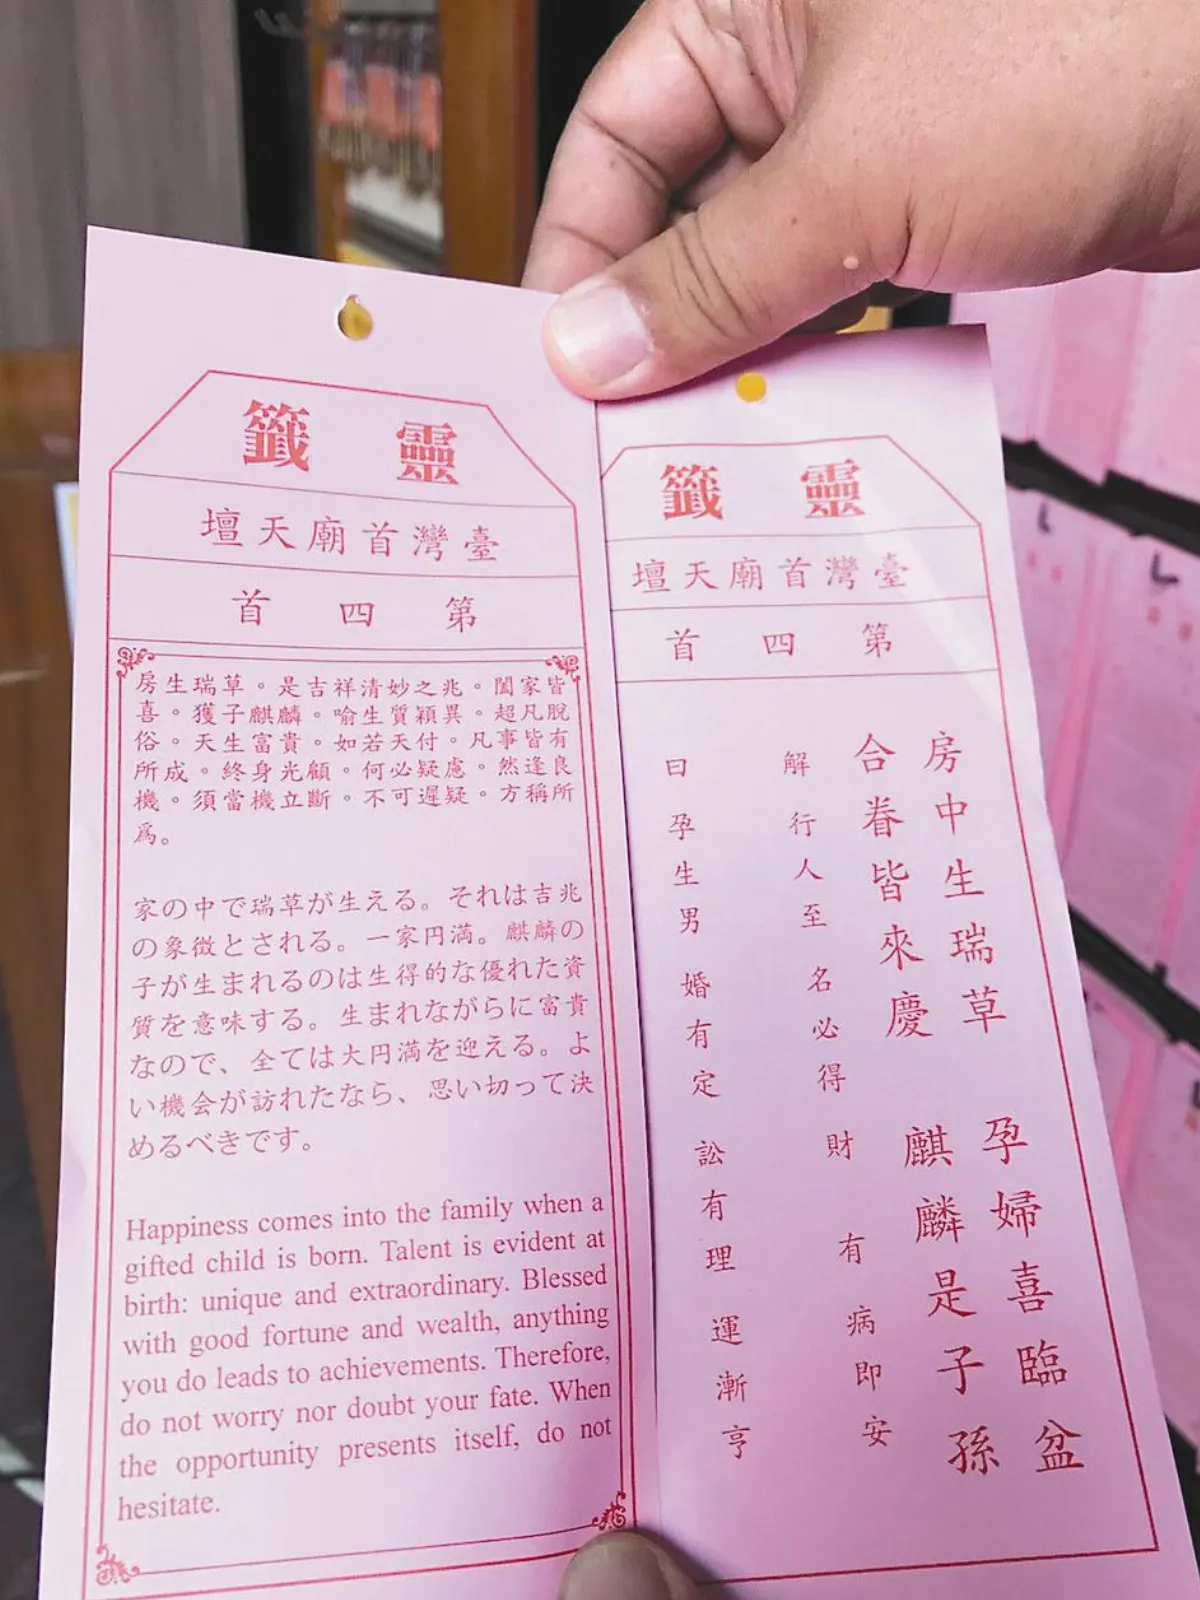 靈籤
臺灣首廟天壇
第四首
房生瑞草。是吉祥清妙之兆。闔家皆
喜。獲子麒麟。喻生質穎異。超凡脫
俗。天生富貴。如若天付。凡事皆有
所成。終身光顧。何必疑慮。然逢良
機。須當機立斷。不可遲疑。方稱所
爲。
家の中で瑞草が生える。それは吉兆
の象徴とされる。一家円満。麒麟の
子が生まれるのは生得的な優れた資
質を意味する。生まれながらに富貴
なので、全ては大円満を迎える。よ
い機会が訪れたなら、思い切って決
めるべきです。
Happiness comes into the family when a
gifted child is born. Talent is evident at
birth: unique and extraordinary. Blessed
with good fortune and wealth, anything
you do leads to achievements. Therefore,
do not worry nor doubt your fate. When
the opportunity presents itself, do not
hesitate.
靈籤
臺灣首廟天壇
第四首
房中生瑞草 孕婦喜臨盆
合眷皆來慶 麒麟是子孫
解 行人至 名必得 財有 病即安
曰 孕生男 婚有定 訟有理 運漸亨